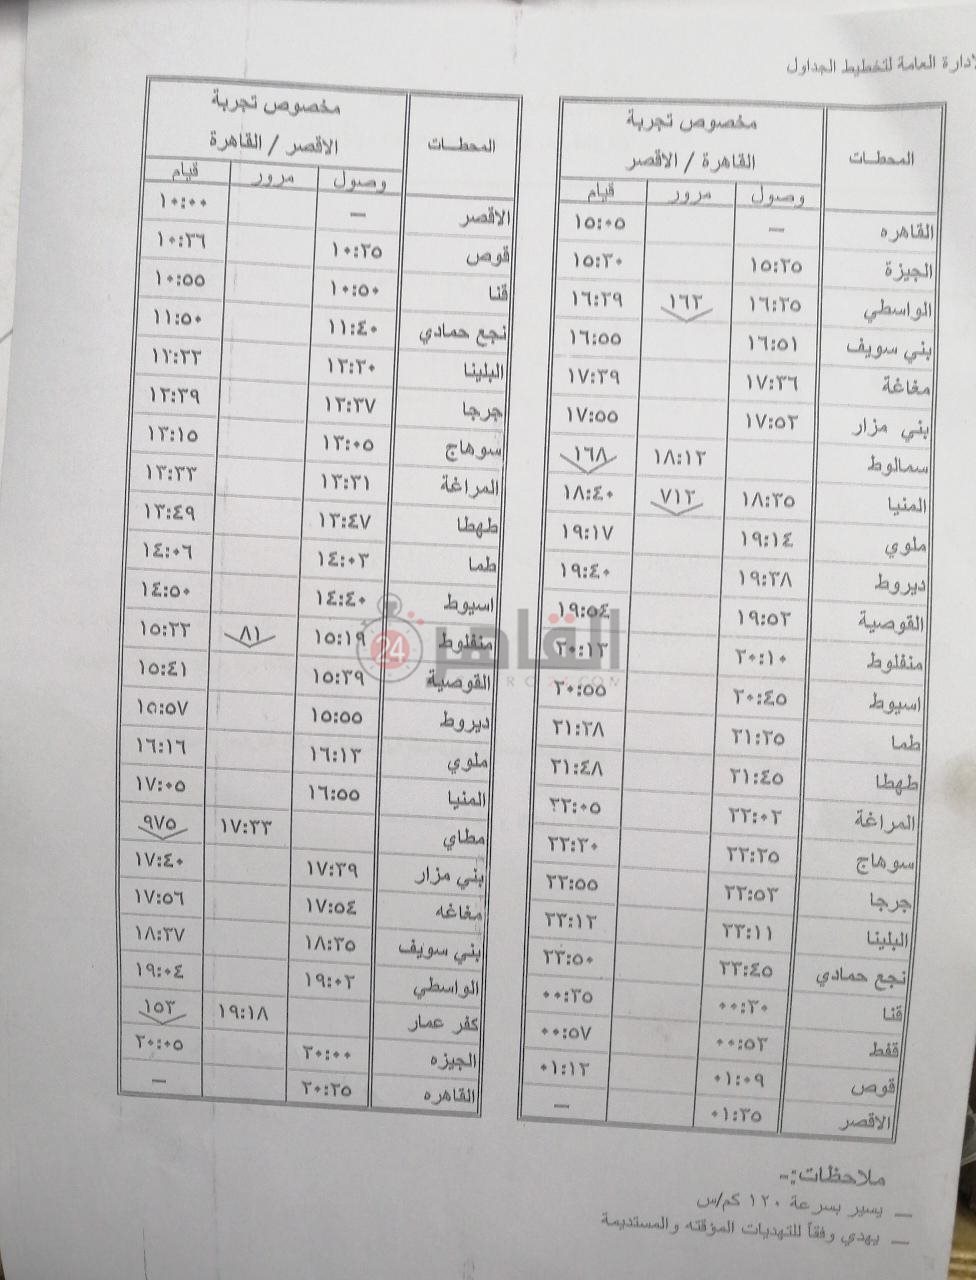 لادارة العامة لتخطيط الجداول
المحطات مخصوص تجربة
القاهرة / الاقصر
وصول مرور قيام
القاهره — ١٥:٠٥
الجيزة ١٥:٢٥ ١٥:٣٠
الواسطي ١٦:٢٥ ١٦٢ ١٦:٢٩
بني سويف ١٦:٥١ ١٦:٥٥
مغاغة ١٧:٣٦ ١٧:٣٩
بني مزار ١٧:٥٣ ١٧:٥٥
سمالوط ١٨:١٢ ١٦٨
المنيا ١٨:٣٥ ٧١٢ ١٨:٤٠
ملوي ١٩:١٤ ١٩:١٧
ديروط ١٩:٣٨ ١٩:٤٠
القوصية ١٩:٥٢ ١٩:٥٤
منفلوط ٢٠:١٠ ٢٠:١٢
اسيوط ٢٠:٤٥ ٢٠:٥٥
طما ٢١:٢٥ ٢١:٢٨
طهطا ٢١:٤٥ ٢١:٤٨
المراغة ٢٢:٠٢ ٢٢:٠٥
سوهاج ٢٢:٢٥ ٢٢:٣٠
جرجا ٢٢:٥٣ ٢٢:٥٥
البلينا ٢٣:١١ ٢٣:١٣
نجع حمادي ٢٣:٤٥ ٢٣:٥٠
قنا ٠٠:٣٠ ٠٠:٣٥
قفط ٠٠:٥٣ ٠٠:٥٧
قوص ٠١:٠٩ ٠١:١٢
الاقصر ٠١:٣٥ —
المحطات مخصوص تجربة
الاقصر / القاهرة
وصول مرور قيام
الاقصر — ١٠:٠٠
قوص ١٠:٢٥ ١٠:٢٦
قنا ١٠:٥٠ ١٠:٥٥
نجع حمادي ١١:٤٠ ١١:٥٠
البلينا ١٢:٢٠ ١٢:٢٢
جرجا ١٢:٣٧ ١٢:٣٩
سوهاج ١٣:٠٥ ١٣:١٥
المراغة ١٣:٣١ ١٣:٣٣
طهطا ١٣:٤٧ ١٣:٤٩
طما ١٤:٠٣ ١٤:٠٦
اسيوط ١٤:٤٠ ١٤:٥٠
منفلوط ١٥:١٩ ٨١ ١٥:٢٢
القوصية ١٥:٣٩ ١٥:٤١
ديروط ١٥:٥٥ ١٥:٥٧
ملوي ١٦:١٣ ١٦:١٦
المنيا ١٦:٥٥ ١٧:٠٥
مطاي ١٧:٢٣ ٩٧٥
بني مزار ١٧:٣٩ ١٧:٤٠
مغاغه ١٧:٥٤ ١٧:٥٦
بني سويف ١٨:٢٥ ١٨:٢٧
الواسطي ١٩:٠٢ ١٩:٠٤
كفر عمار ١٩:١٨ ١٥٣
الجيزه ٢٠:٠٠ ٢٠:٠٥
القاهره ٢٠:٢٥ —
القاهرة 24
ملاحظات:-
— يسير بسرعة ١٢٠ كم/س
— يهدي وفقاً للتهديات المؤقته والمستديمة